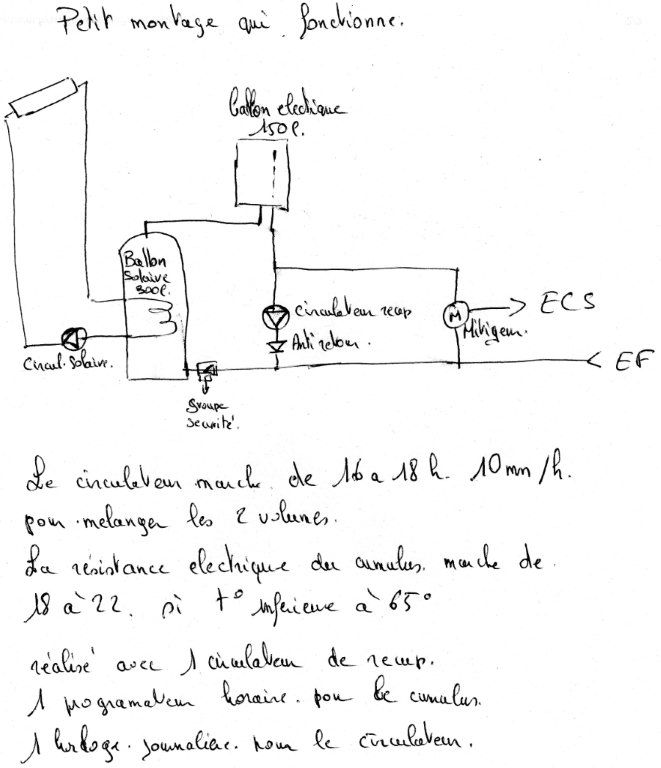 Petit montage qui fonctionne.
Ballon electrique
150l.
Ballon
Solaire
300l.
circulateur recup
Anti retour.
M
Mitigeur.
ECS
EF
Circul. Solaire.
Groupe
securité.
Le circulateur marche de 16 a 18 h. 10 mn/h.
pour melanger les 2 volumes.
La résistance electrique du cumulus. marche de
18 à 22. si t° inferieure à 65°
réalisé avec 1 circulateur de recup.
1 programateur horaire. pour le cumulus.
1 horloge journaliere. pour le circulateur.